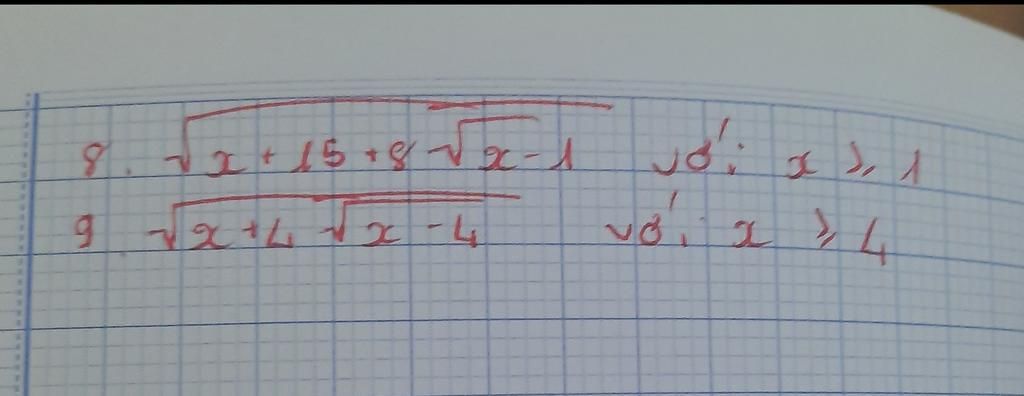 8. √(x + 15 + 8√(x - 1)) với x ≥ 1
9 √(x + 4√(x - 4)) với x ≥ 4